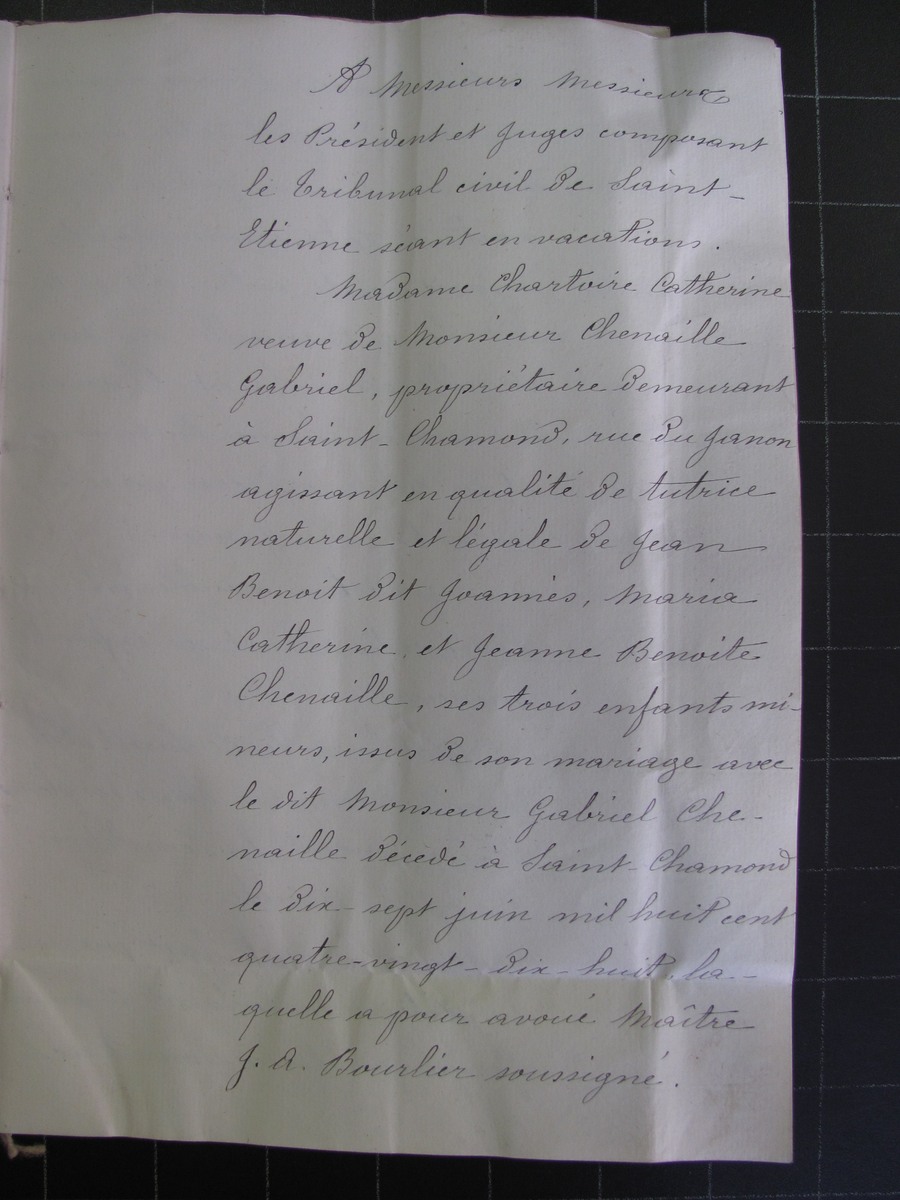 A Messieurs Messieurs
les Président et Juges composant
le Tribunal civil de Saint-
Etienne séant en vacations.
Madame Chartoire Catherine
veuve de Monsieur Chenaille
Gabriel, propriétaire demeurant
à Saint-Chamond, rue du Janon
agissant en qualité de tutrice
naturelle et légale de Jean
Benoit dit Joannès, Maria
Catherine et Jeanne Benoite
Chenaille, ses trois enfants mi-
neurs, issus de son mariage avec
le dit Monsieur Gabriel Che-
naille décédé à Saint-Chamond
le dix-sept juin mil huit cent
quatre-vingt-dix-huit, la-
quelle a pour avoué Maître
J. A. Bourlier soussigné.